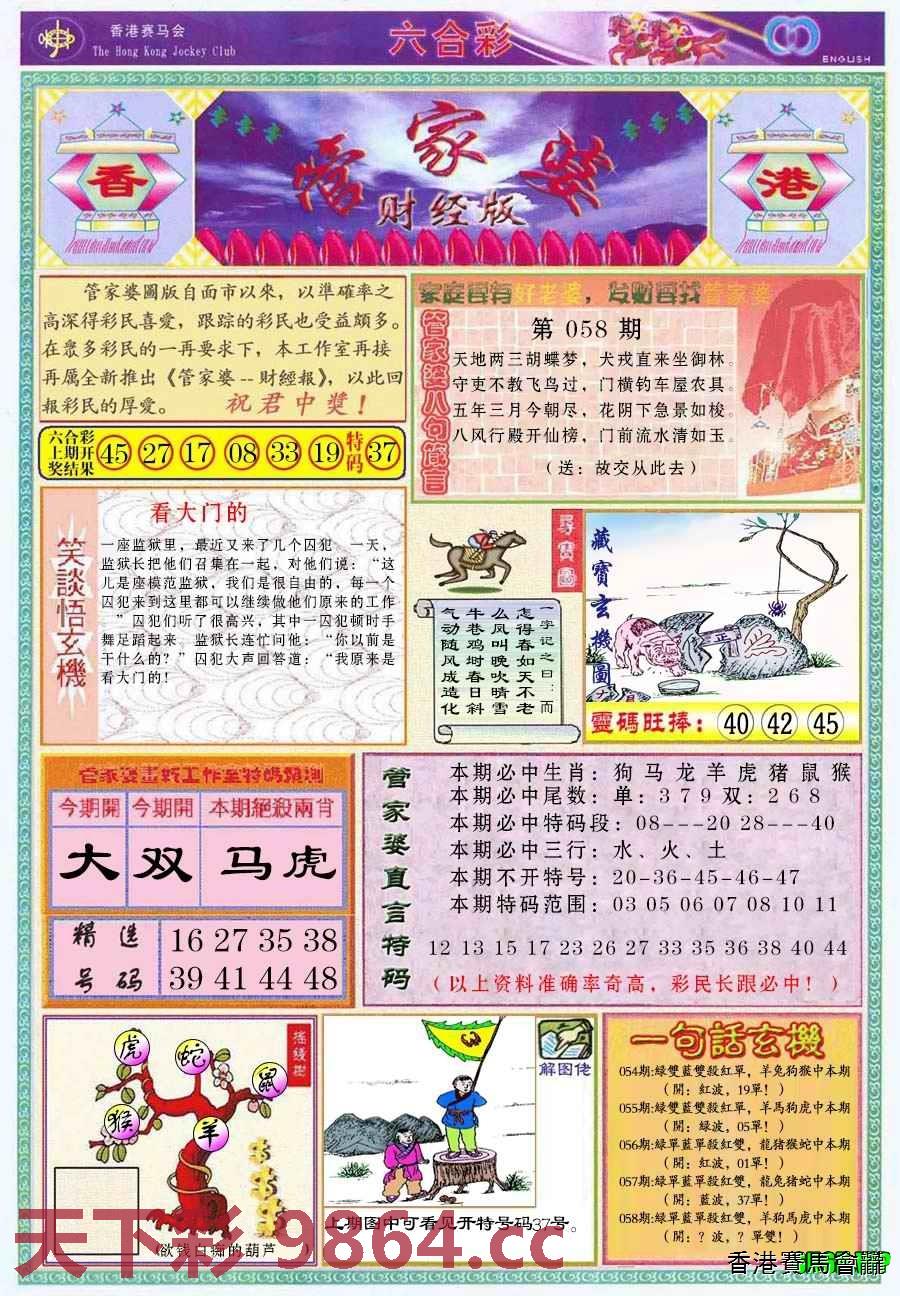 香港赛马会
The Hong Kong Jockey Club
六合彩
ENGLISH
香
管家婆
财经版
港
管家婆圖版自面市以來，以準確率之
高深得彩民喜愛，跟踪的彩民也受益頗多。
在眾多彩民的一再要求下，本工作室再接
再厲全新推出《管家婆--財經報》，以此回
報彩民的厚愛。 祝君中獎！
六合彩
上期开
奖结果
45 27 17 08 33 19 特码 37
家庭要有好老婆，发财要找管家婆
管家婆八句箴言
第 058 期
天地两三胡蝶梦，犬戎直来坐御林。
守吏不教飞鸟过，门横钓车屋农具。
五年三月今朝尽，花阴下急景如梭。
八风行殿开仙榜，门前流水清如玉。
（送：故交从此去）
笑談悟玄機
看大门的
一座监狱里，最近又来了几个囚犯 一天，
监狱长把他们召集在一起，对他们说：“这
儿是座模范监狱，我们是很自由的，每一个
囚犯来到这里都可以继续做他们原来的工作
”囚犯们听了很高兴，其中一囚犯顿时手
舞足蹈起来．监狱长连忙问他：“你以前是
干什么的？”囚犯大声回答道：“我原来是
看大门的！
尋寶圖
一字记之曰：而
怎得春如天不老
么凤叫晚吹晴雪
牛巷鸡埘春日斜
气动随风成造化
藏寶玄機圖
正
靈碼旺捧： 40 42 45
今期開 今期開 本期絕殺兩肖
大 双 马虎
精选
号码
16 27 35 38
39 41 44 48
管家婆直言特码
本期必中生肖：狗 马 龙 羊 虎 猪 鼠 猴
本期必中尾数：单：3 7 9 双：2 6 8
本期必中特码段：08---20 28---40
本期必中三行：水、火、土
本期不开特号：20-36-45-46-47
本期特码范围：03 05 06 07 08 10 11
12 13 15 17 23 26 27 33 35 36 38 40 44
（以上资料准确率奇高，彩民长跟必中！）
摇钱樹
虎
蛇
鼠
猴
羊
(欲钱白痴的葫芦 )
解图佬
上期图中可看见开特号码37号。
一句話玄機
054期:綠雙藍雙殺紅單，羊兔狗猴中本期
（開：紅波，19單！）
055期:綠雙藍雙殺紅單，羊馬狗虎中本期
（開：綠波，05單！）
056期:綠單藍單殺紅雙，龍豬猴蛇中本期
（開：紅波，01單！）
057期:綠單藍單殺紅雙，龍兔豬蛇中本期
（開：藍波，37單！）
058期:綠單藍單殺紅雙，羊狗馬虎中本期
（開：？波，？單雙！）
天下彩 9864.cc
香港賽馬會